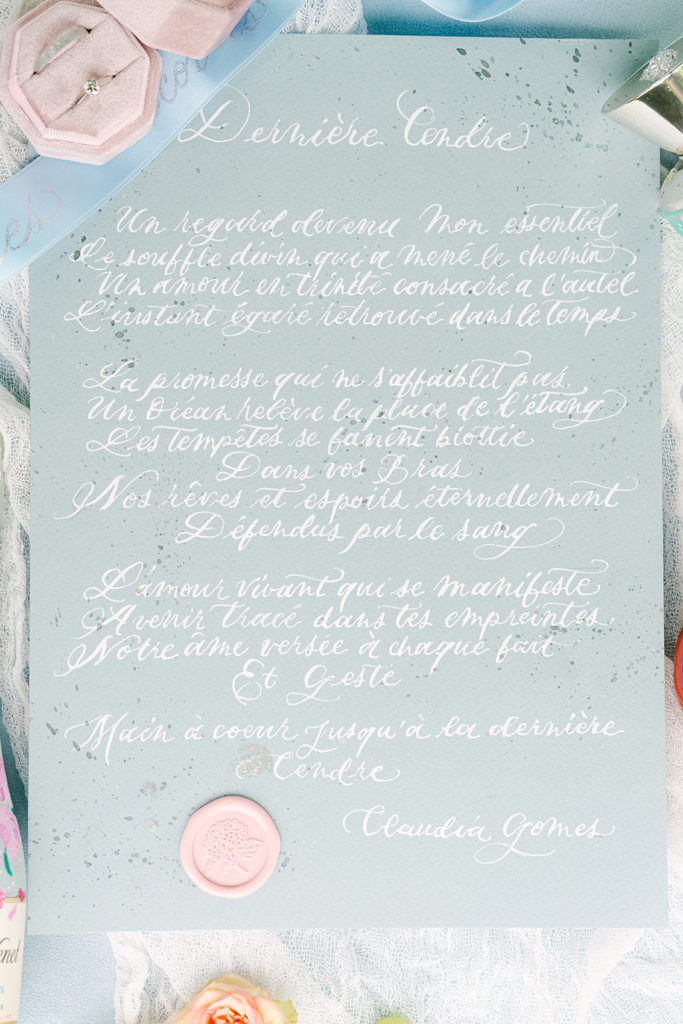 Dernière Cendre
Un regard devenu Mon essentiel
Le souffle divin qui a mené le chemin
Un amour en trinité consacré a l'autel
L'instant égaré retrouvé dans le temps
La promesse qui ne s'affaiblit pas.
Un Océan relève la place de l'étang
Les tempêtes se fanent blottie
Dans vos Bras
Nos rêves et espoirs éternellement
Défendus par le sang
L'amour vivant qui se manifeste
Avenir tracé dans tes empreintes,
Notre âme versée à chaque fait
Et Geste
Main à coeur jusqu'à la dernière
Cendre
Claudia Gomes